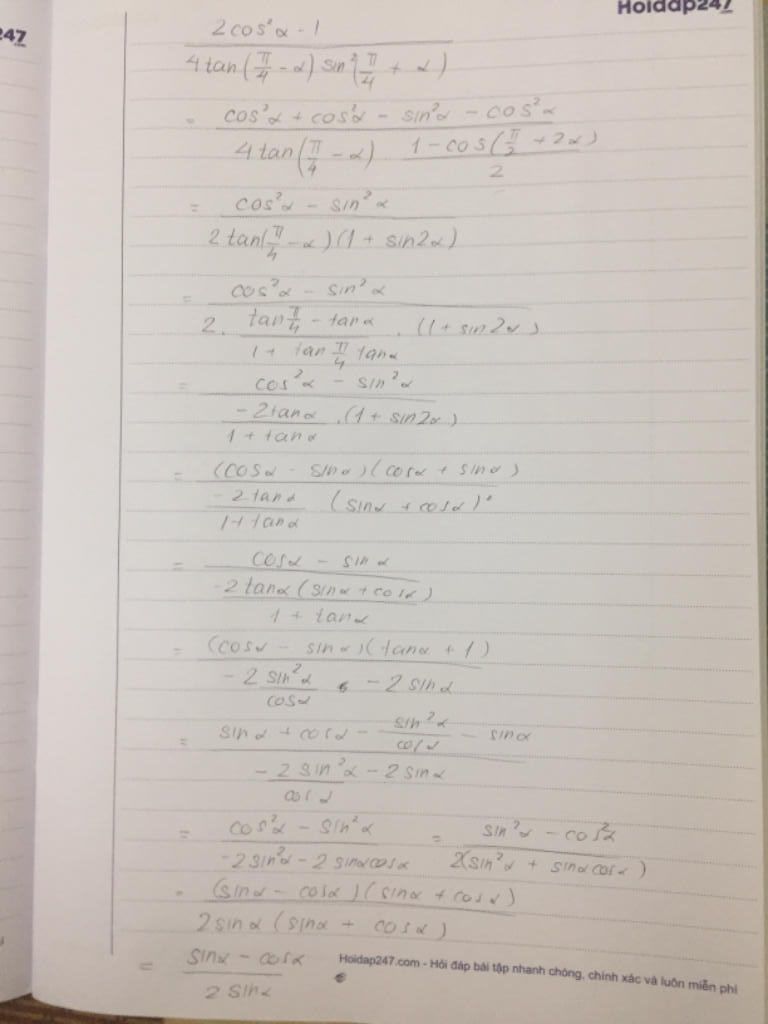 Hoidap247
247
2cos²α - 1 / 4tan(π/4 - α) sin²(π/4 + α)
= cos²α + cos²α - sin²α - cos²α / 4tan(π/4 - α) 1 - cos(π/2 + 2α) / 2
= cos²α - sin²α / 2tan(π/4 - α)(1 + sin2α)
= cos²α - sin²α / 2. tanπ/4 - tanα / 1 + tanπ/4 tanα . (1 + sin2α)
= cos²α - sin²α / -2tanα / 1 + tanα .(1 + sin2α)
= (cosα - sinα)(cosα + sinα) / -2tanα / 1+tanα (sinα + cosα)²
= cosα - sinα / -2tanα(sinα + cosα) / 1 + tanα
= (cosα - sinα)(tanα + 1) / -2sin²α / cosα - 2sinα
= sinα + cosα - sin²α / cosα - sinα / -2sin²α / cosα - 2sinα
= cos²α - sin²α / -2sin²α - 2sinαcosα = sin²α - cos²α / 2(sin²α + sinαcosα)
= (sinα - cosα)(sinα + cosα) / 2sinα(sinα + cosα)
= sinα - cosα / 2sinα
Hoidap247.com - Hỏi đáp bài tập nhanh chóng, chính xác và luôn miễn phí